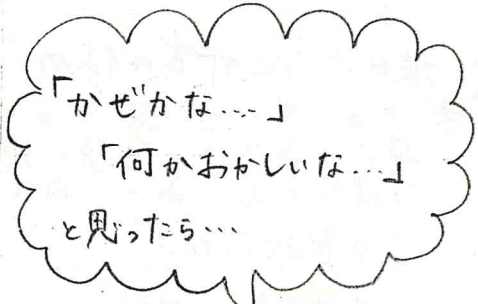 「かぜかな…」
「何かおかしいな…」
と思ったら…